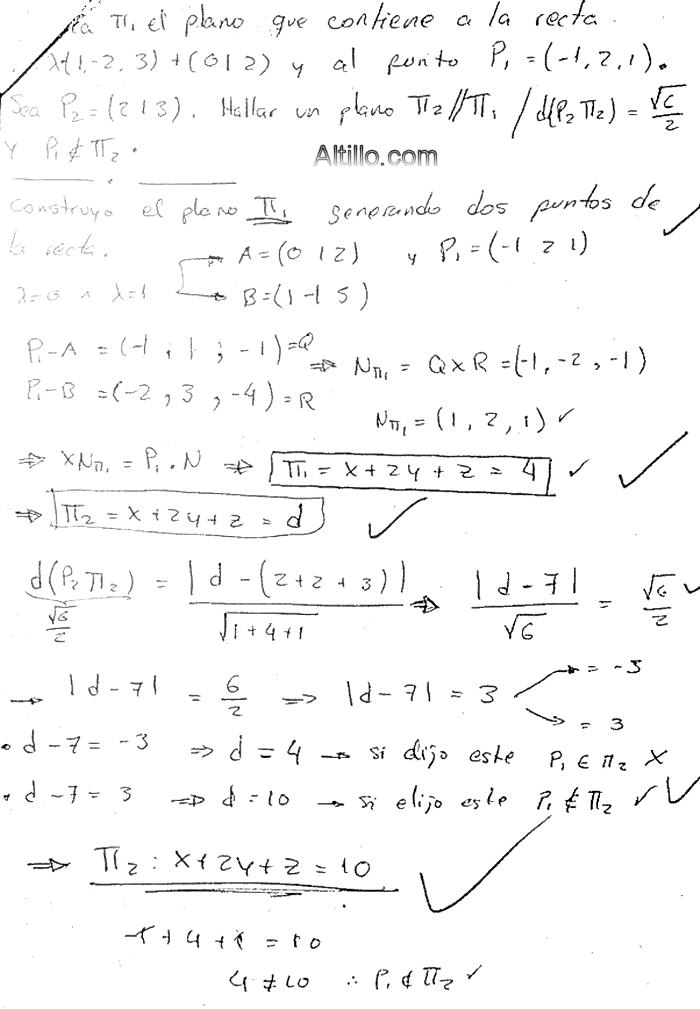 Sea π₁ el plano que contiene a la recta
λ(1,-2,3)+(0 1 2) y al punto P₁=(-1,2,1).
Sea P₂=(2 1 3). Hallar un plano π₂//π₁ / d(P₂ π₂) = √6/2
y P₁∉π₂.
Altillo.com
Construyo el plano π₁ generando dos puntos de
la recta. → A=(0 1 2) y P₁=(-1 2 1)
λ=0 ∧ λ=1 → B=(1 -1 5)
P₁-A = (-1, 1; -1)=Q
⇒ Nπ₁ = Q×R =(-1,-2,-1)
P₁-B =(-2,3,-4)=R
Nπ₁=(1,2,1) ✓
⇒ XNπ₁ = P₁.N ⇒ π₁ = x+2y+z = 4 ✓ ✓
⇒ π₂ = x+2y+z = d ✓
d(P₂ π₂) = |d-(2+2+3)| / √(1+4+1) ⇒ |d-7| / √6 = √6/2 ✓
√6/2
→ |d-7| = 6/2 ⇒ |d-7| = 3 → = -3
→ = 3
• d-7=-3 ⇒ d=4 → si elijo este P₁∈π₂ X
• d-7=3 ⇒ d=10 → si elijo este P₁∉π₂ ✓ ✓
⇒ π₂: x+2y+z=10 ✓
-1+4+1=10
4≠10 ∴ P₁∉π₂ ✓